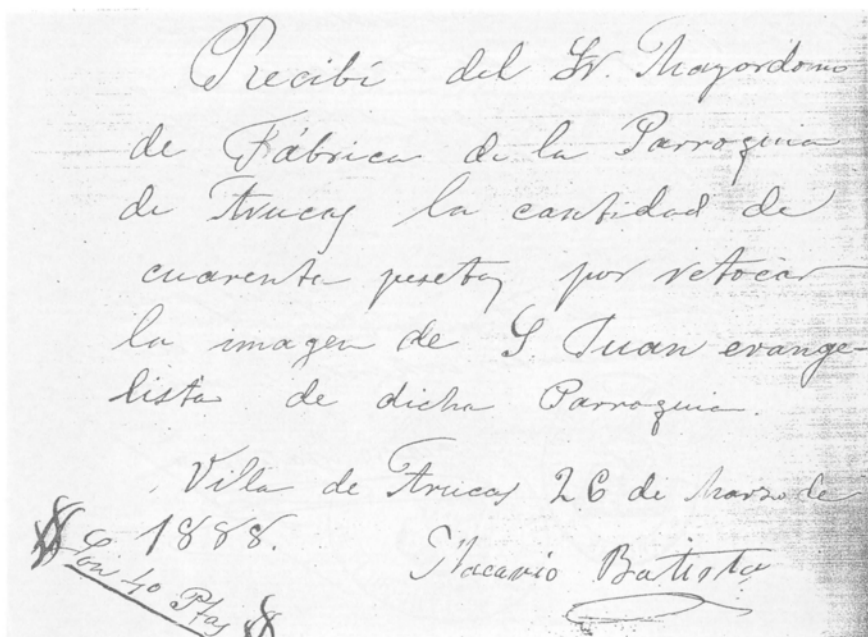 Recibí del Sr. Mayordomo
de Fábrica de la Parroquia
de Arucas la cantidad de
cuarenta pesetas por retocar
la imagen de S. Juan evange-
lista de dicha Parroquia.
Villa de Arucas 26 de Marzo de
1888.
Son 40 Ptas
Macario Batista